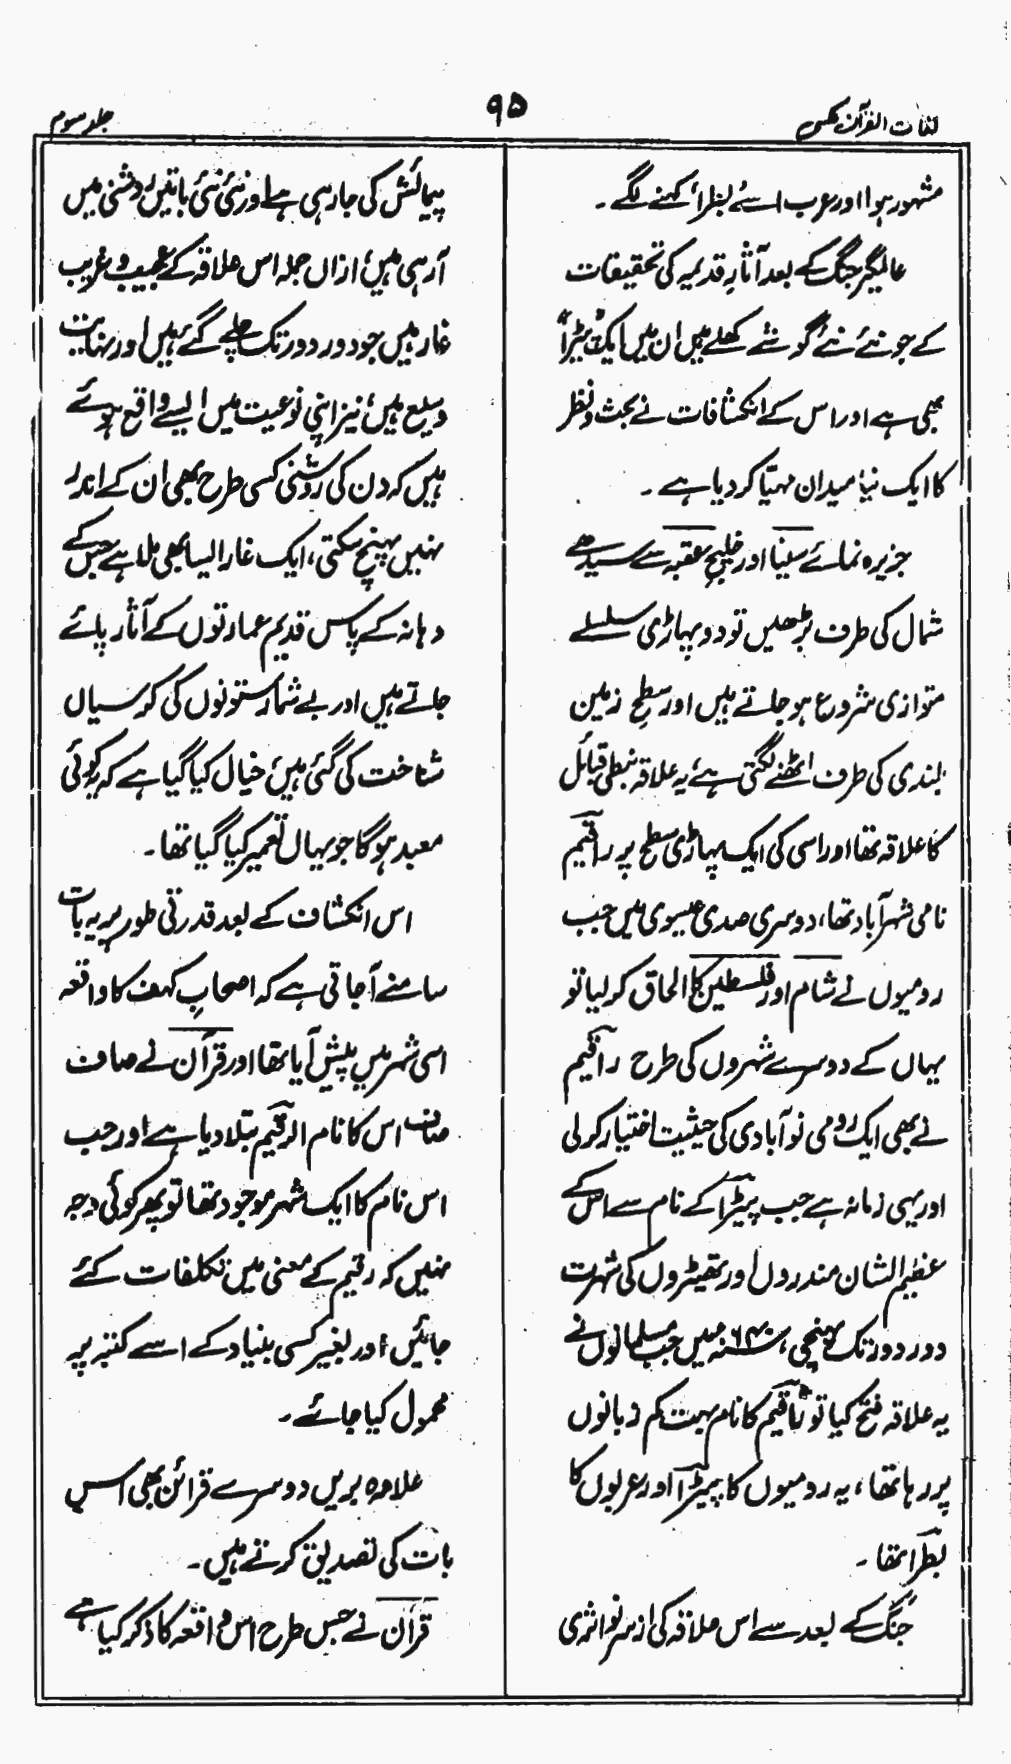 لغات القرآن مکسی
۹۵
جلد سوم
مشہور ہوا اور عرب اسے بطرا، کہنے لگے۔
عالمگیر جنگ کے بعد آثارِ قدیمہ کی تحقیقات
کے جو نئے نئے گوشے کھلے ہیں ان میں ایک "پیٹرا"
بھی ہے اور اس کے انکشافات نے بحث و نظر
کا ایک نیا میدان مہیّا کر دیا ہے۔
جزیرہ نمائے سینا اور خلیج عقبہ سے سیدھے
شمال کی طرف بڑھیں تو دو پہاڑی سلسلے
متوازی شروع ہو جاتے ہیں اور سطحِ زمین
بلندی کی طرف اٹھنے لگتی ہے، یہ علاقہ نبطی قبائل
کا علاقہ تھا اور اسی کی ایک پہاڑی سطح پر راقیم
نامی شہر آباد تھا، دوسری صدی عیسوی میں جب
رومیوں نے شام اور فلسطین کا الحاق کر لیا تو
یہاں کے دوسرے شہروں کی طرح راقیم
نے بھی ایک رومی نو آبادی کی حیثیت اختیار کرلی
اور یہی زمانہ ہے جب پیٹرا کے نام سے اس کے
عظیم الشان مندروں اور تھیٹروں کی شہرت
دور دور تک پہنچی، ۶۴۰ء میں جب مسلمانوں نے
یہ علاقہ فتح کیا تو راقیم کا نام بہت کم زبانوں
پر رہا تھا، یہ رومیوں کا پیٹرا اور عربوں کا
بطرا تھا۔
جنگ کے بعد سے اس علاقہ کی از سر نو اثری
پیمائش کی جا رہی ہے اور نئی نئی باتیں روشنی میں
آ رہی ہیں، ازاں جملہ اس علاقہ کے عجیب و غریب
غار ہیں جو دور دور تک چلے گئے ہیں اور نہایت
وسیع ہیں، نیز اپنی نوعیت میں ایسے واقع ہوئے
ہیں کہ دن کی روشنی کسی طرح بھی ان کے اندر
نہیں پہنچ سکتی، ایک غار ایسا بھی ملا ہے جس کے
دہانہ کے پاس قدیم عمارتوں کے آثار پائے
جاتے ہیں اور بے شمار ستونوں کی کرسیاں
شناخت کی گئی ہیں، خیال کیا گیا ہے کہ یہ کوئی
معبد ہو گا جو یہاں تعمیر کیا گیا تھا۔
اس انکشاف کے بعد قدرتی طور پر یہ بات
سامنے آ جاتی ہے کہ اصحابِ کہف کا واقعہ
اسی شہر میں پیش آیا تھا اور قرآن نے صاف
صاف اس کا نام الرقیم بتلا دیا ہے اور جب
اس نام کا ایک شہر موجود تھا تو پھر کوئی وجہ
نہیں کہ رقیم کے معنی میں تکلفات کئے
جائیں، اور بغیر کسی بنیاد کے اسے کتبہ پر
محمول کیا جائے۔
علاوہ بریں دوسرے قرائن بھی اس
بات کی تصدیق کرتے ہیں۔
قرآن نے جس طرح اس واقعہ کا ذکر کیا ہے